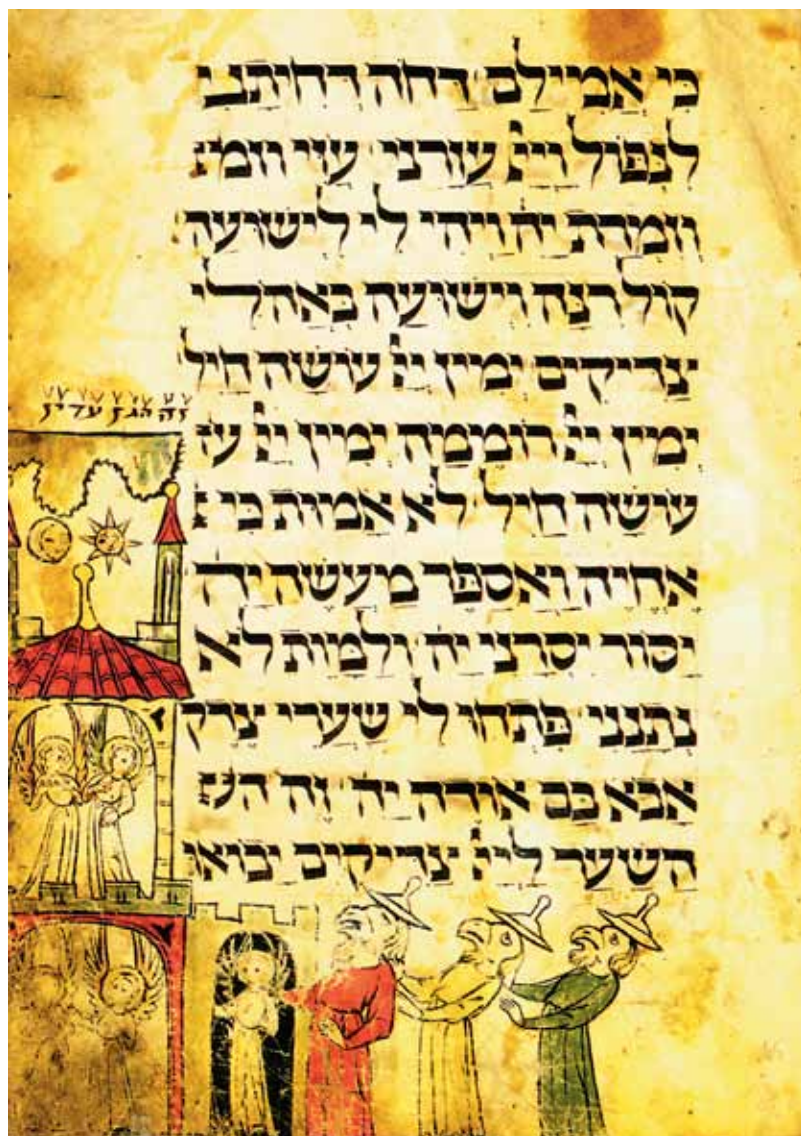 כי אמילם דחה דחיתני
לנפול ויי עזרני עזי וזמ
וזמרת יה ויהי לי לישועה
קול רנה וישועה באהלי
צדיקים ימין יי עושה חיל
ימין יי רוממה ימין יי ע
עושה חיל לא אמות כי
אחיה ואספר מעשה יה
יסור יסרני יה ולמות לא
נתנני פתחו לי שערי צדק
אבא בם אודה יה זה הש
השער ליי צדיקים יבואו
זה הגן עדין